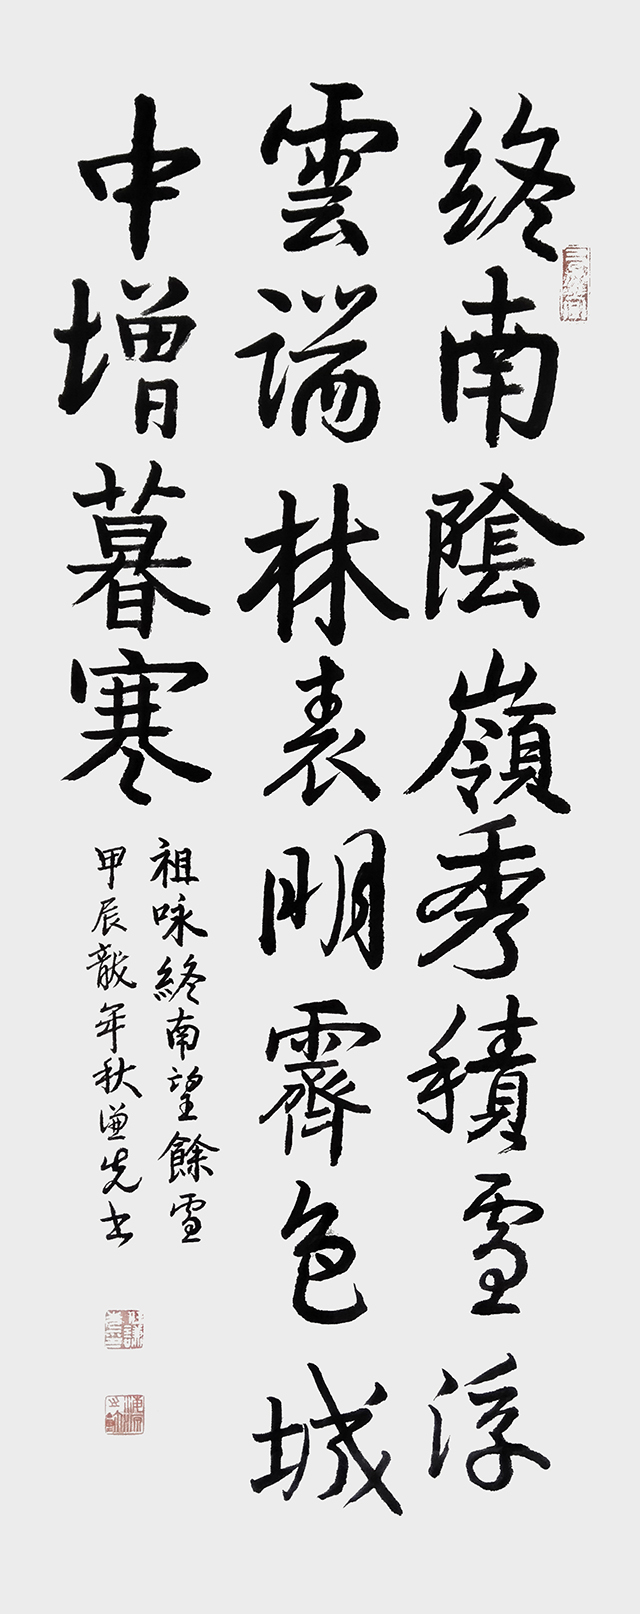 終南陰嶺秀積雪浮
雲端林表明霽色城
中增暮寒
祖咏終南望餘雪
甲辰龍年秋謙先書